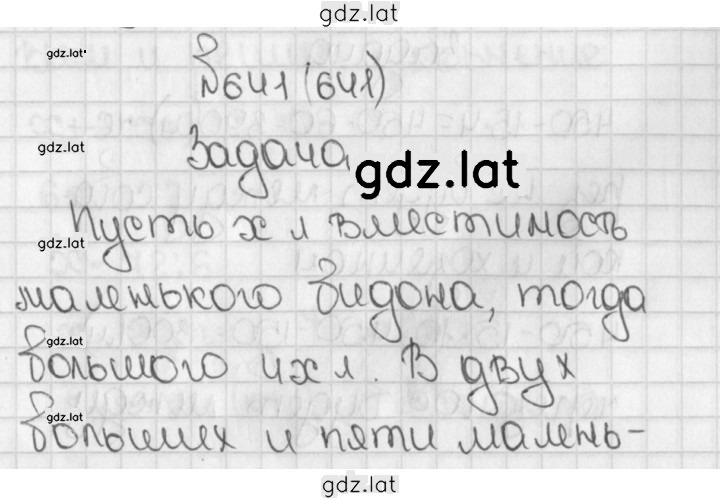 gdz.lat
gdz.lat
№641 (641)
gdz.lat
Задача
gdz.lat
Пусть х л вместимость
gdz.lat
маленького бидона, тогда
gdz.lat
большого 4х л. В двух
gdz.lat
больших и пяти малень-
gdz.lat